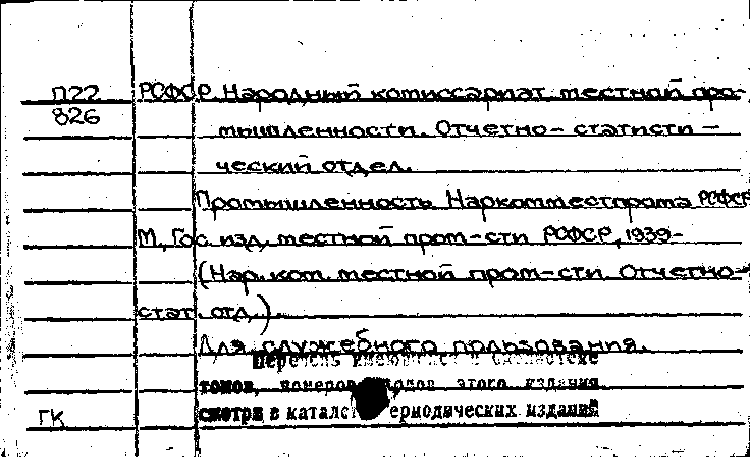 П22 РСФСР. Народный комиссариат местной про-
826 мышленности. Отчетно-статисти-
ческий отдел.
Промышленность Наркомместпрома РСФСР
М., Гос. изд. местной пром-сти РСФСР, 1939-
(Нар. ком. местной пром-сти. Отчетно-
стат. отд.).
Для служебного пользования.
Перечень имеющихся в библиотеке
томов, номеров годов этого издания
ГК смотри в катал периодических изданий